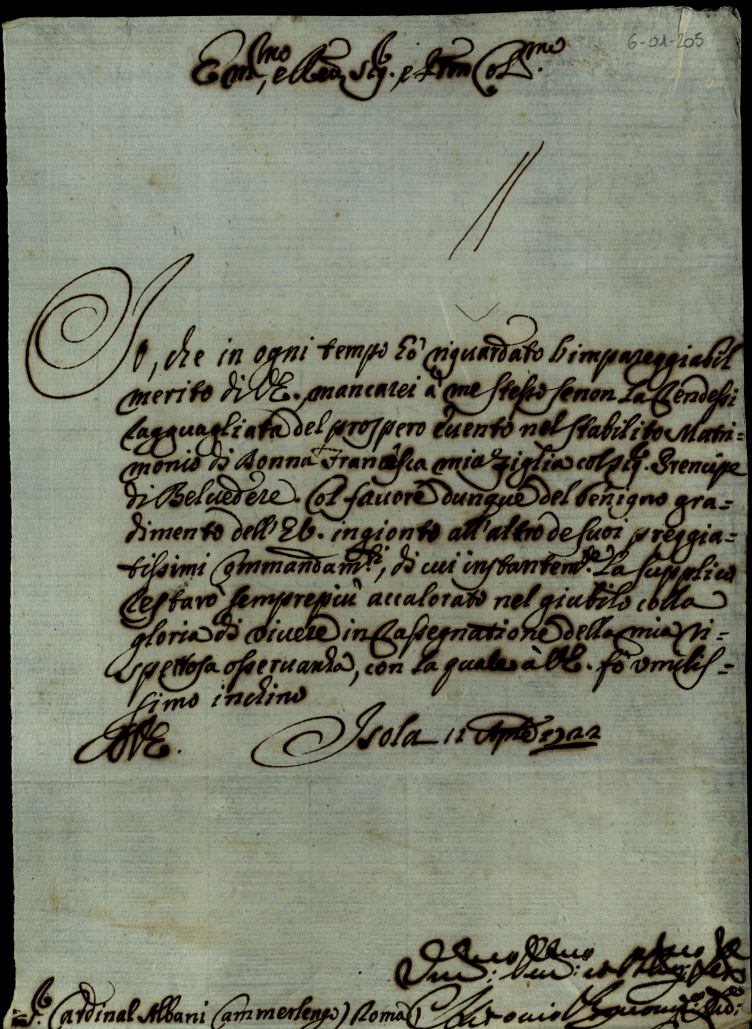 6-01-205
Em.mo, e Rev. Sig. e Pron Col.mo
Io, che in ogni tempo hò riguardato l'impareggiabil
merito di VE., mancarei à me stesso se non La rendessi
ragguagliata del prospero evento nel stabilito Matri=
monio di Donna Francesca mia figlia col Sig. Prencipe
di Belvedere. Col favore dunque del benigno gra=
dimento dell'EV. ingionto all'altro de suoi preggia=
tissimi Commandam.ti, di cui instantem.te La supplico
restarò semprepiù accalorato nel giubilo colla
gloria di vivere in rassegnatione della mia ri=
spettosa osservanza, con la quale à VE. fò umilis=
simo inchino
DVE. Isola 11 Aple 1722
Sig. Cardinal Albani Cammerlengo) Roma)